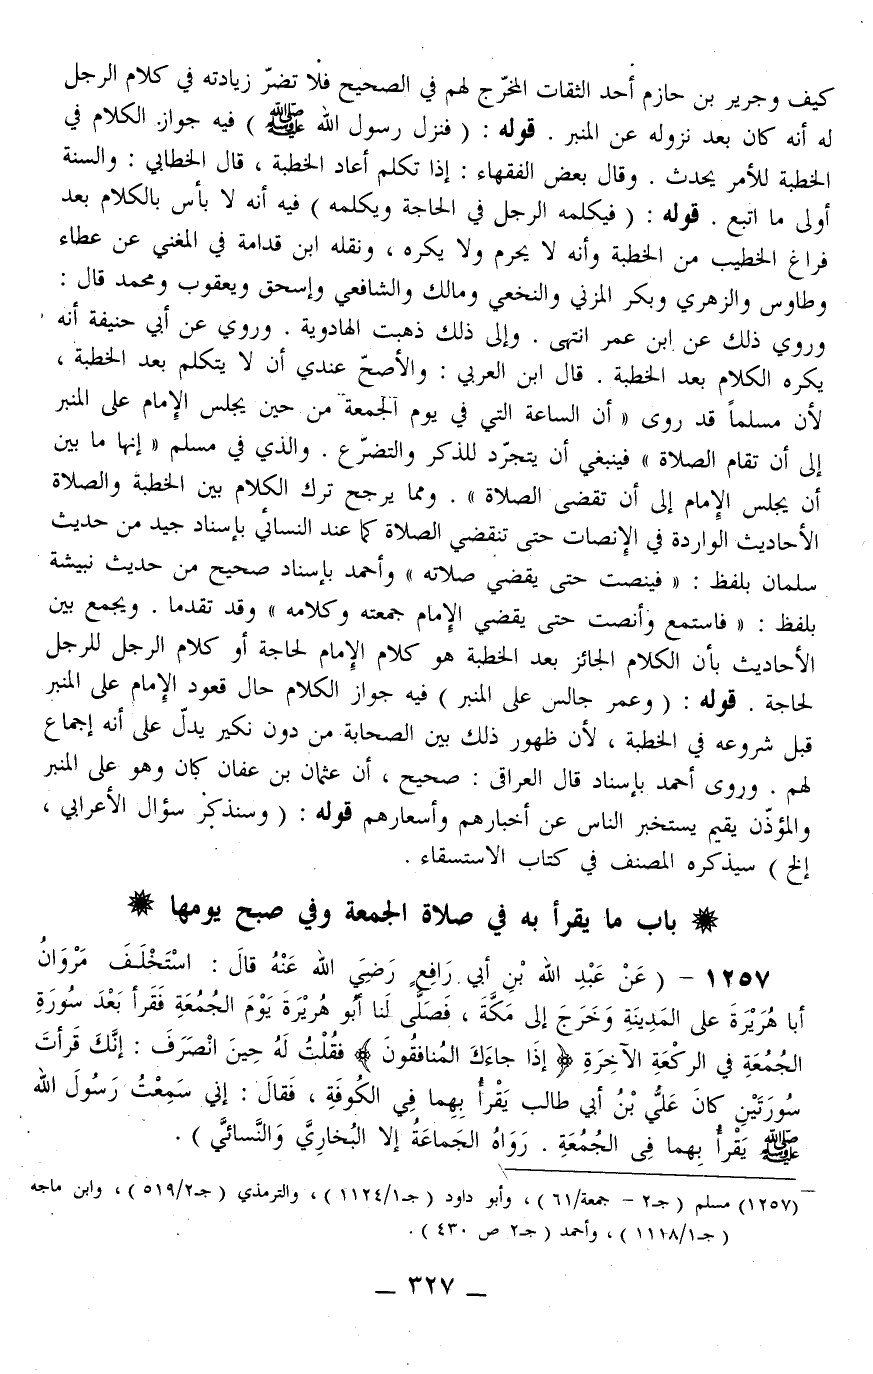 كيف وجرير بن حازم أحد الثقات المخرّج لهم في الصحيح فلا تضرّ زيادته في كلام الرجل
له أنه كان بعد نزوله عن المنبر . قوله : ( فنزل رسول الله ﷺ ) فيه جواز الكلام في
الخطبة للأمر يحدث . وقال بعض الفقهاء : إذا تكلم أعاد الخطبة ، قال الخطابي : والسنة
أولى ما اتبع . قوله : ( فيكلمه الرجل في الحاجة ويكلمه ) فيه أنه لا بأس بالكلام بعد
فراغ الخطيب من الخطبة وأنه لا يحرم ولا يكره ، ونقله ابن قدامة في المغني عن عطاء
وطاوس والزهري وبكر المزني والنخعي ومالك والشافعي وإسحق ويعقوب ومحمد قال :
وروي ذلك عن ابن عمر انتهى . وإلى ذلك ذهبت الهادوية . وروي عن أبي حنيفة أنه
يكره الكلام بعد الخطبة . قال ابن العربي : والأصحّ عندي أن لا يتكلم بعد الخطبة ،
لأن مسلماً قد روى « أن الساعة التي في يوم الجمعة من حين يجلس الإمام على المنبر
إلى أن تقام الصلاة » فينبغي أن يتجرّد للذكر والتضرّع . والذي في مسلم « إنها ما بين
أن يجلس الإمام إلى أن تقضى الصلاة » . ومما يرجح ترك الكلام بين الخطبة والصلاة
الأحاديث الواردة في الإنصات حتى تنقضي الصلاة كما عند النسائي بإسناد جيد من حديث
سلمان بلفظ : « فينصت حتى يقضي صلاته » وأحمد بإسناد صحيح من حديث نبيشة
بلفظ : « فاستمع وأنصت حتى يقضي الإمام جمعته وكلامه » وقد تقدما . ويجمع بين
الأحاديث بأن الكلام الجائز بعد الخطبة هو كلام الإمام لحاجة أو كلام الرجل للرجل
لحاجة . قوله : ( وعمر جالس على المنبر ) فيه جواز الكلام حال قعود الإمام على المنبر
قبل شروعه في الخطبة ، لأن ظهور ذلك بين الصحابة من دون نكير يدلّ على أنه إجماع
لهم . وروى أحمد بإسناد قال العراقى : صحيح ، أن عثمان بن عفان كان وهو على المنبر
والمؤذّن يقيم يستخبر الناس عن أخبارهم وأسعارهم قوله : ( وسنذكر سؤال الأعرابي ،
إلخ ) سيذكره المصنف في كتاب الاستسقاء .
باب ما يقرأ به في صلاة الجمعة وفي صبح يومها
١٢٥٧ – ( عَنْ عَبْدِ الله بْنِ أبي رَافِعٍ رَضِيَ الله عَنْهُ قالَ : اسْتَخْلَفَ مَرْوَانُ
أبا هُرَيْرَةَ على المَدِينَةِ وَخَرَجَ إلى مَكَّةَ ، فَصَلَّى لَنا أَبُو هُرَيْرَةَ يَوْمَ الجُمُعَةِ فَقَرأ بَعْدَ سُورَةِ
الجُمُعَةِ في الركْعَةِ الآخِرَةِ ﴿ إذَا جاءَكَ المُنافقُونَ ﴾ فقُلْتُ لَهُ حِينَ انْصَرَفَ : إنَّكَ قَرأتَ
سُورَتَيْنِ كانَ عَلَيُّ بْنُ أبي طالب يَقْرأُ بِهِما فِي الكُوفَةِ ، فَقالَ : إني سَمِعْتُ رَسُولَ الله
ﷺ يَقْرأُ بِهما فى الجُمُعَةِ . رَوَاهُ الجَماعَةُ إلا البُخاريَّ وَالنَّسائيَّ ) .
(١٢٥٧) مسلم ( جـ٢ – جمعة/٦١) ، وأبو داود ( جـ١/١١٢٤ ) ، والترمذي ( جـ٥١٩/٢ ) ، وابن ماجه
( جـ١/١١١٨ ) ، وأحمد ( جـ٢ ص ٤٣٠ ) .
– ٣٢٧ –